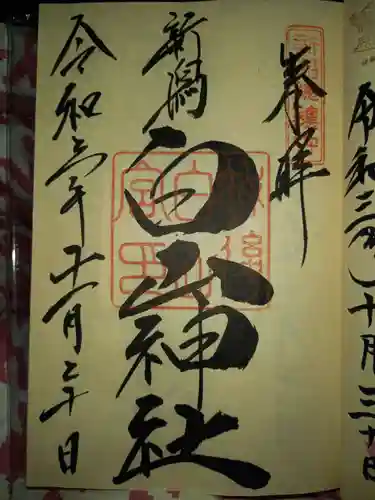 奉拝
新潟
白山神社
令和三年十一月二十日
令和三年十月三十日